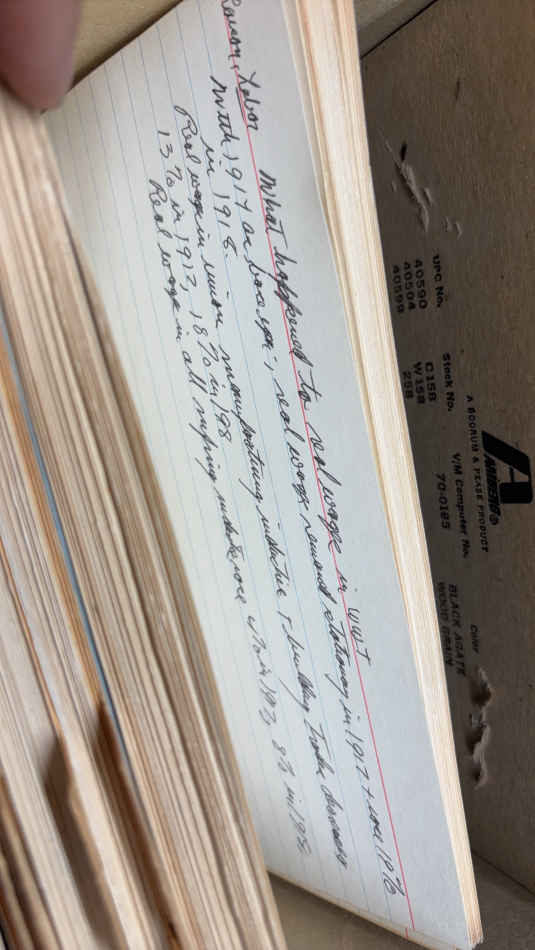 Labor
What happened to real wages in WWI
With 1914 as base year, real wages remained stationary in 1917 + rose 18%
in 1918.
Real wage in union manufacturing industries + building trades
13% in 1917, 18% in 1918
Real wage in all industries 8% in 1918
A BOORUM & PEASE PRODUCT
UPC No. Stock No. V/M Computer No. Color
40590 C158 70-0185 BLACK AGATE
40504 W158 WOOD GRAIN
40599 258